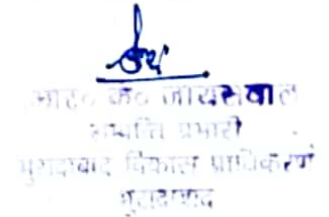 आर० के० जायसवाल
सम्पत्ति प्रभारी
मुरादाबाद विकास प्राधिकरण
मुरादाबाद